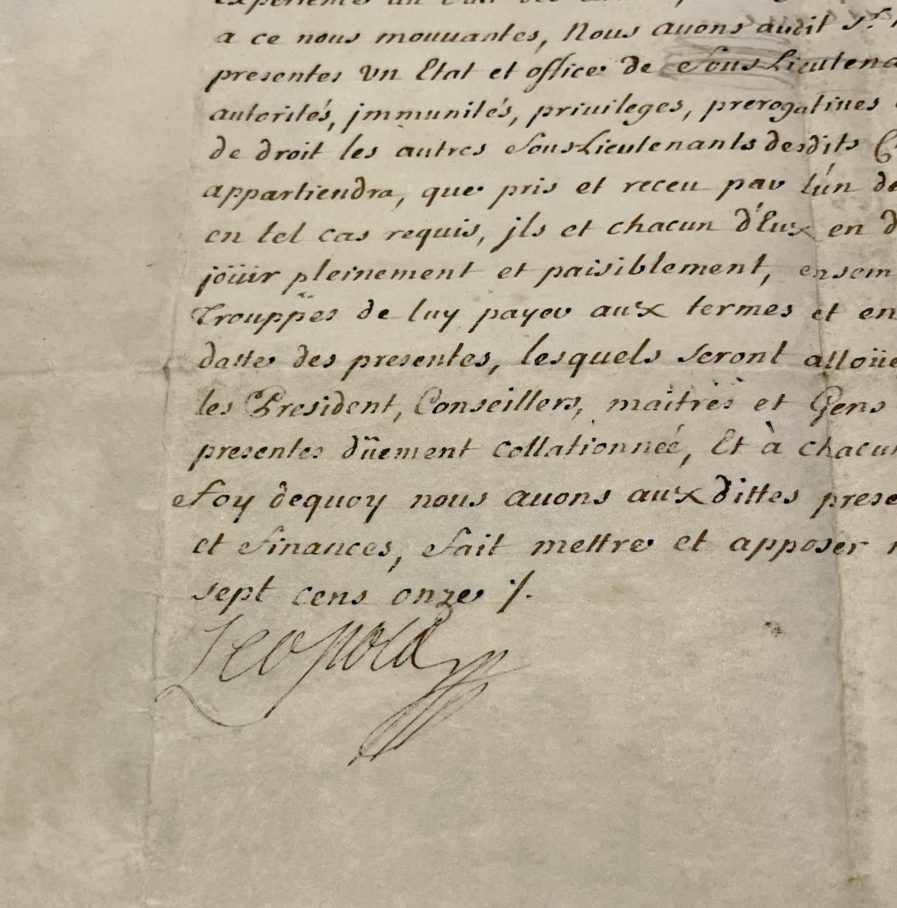 a ce nous mouuantes, Nous auons audit Sr.
presentes Vn Etat et office de Sous Lieutena
autorités, jmmunités, priuileges, prerogatiues
de droit les autres Sous Lieutenants desdits C
appartiendra, que pris et receu par l'ún de
en tel cas requis, jls et chacun d'Eux en d
joüir pleinement et paisiblement, ensem
Trouppes de luy payer aux termes et en
datte des presentes, lesquels seront alloüe
les President, Conseillers, maitres et Gens
presentes düement collationneé, Et à chacun
Foy dequoy nous auons aux dittes prese
et Finances, fait mettre et apposer n
sept cens onze ./.
Leopold